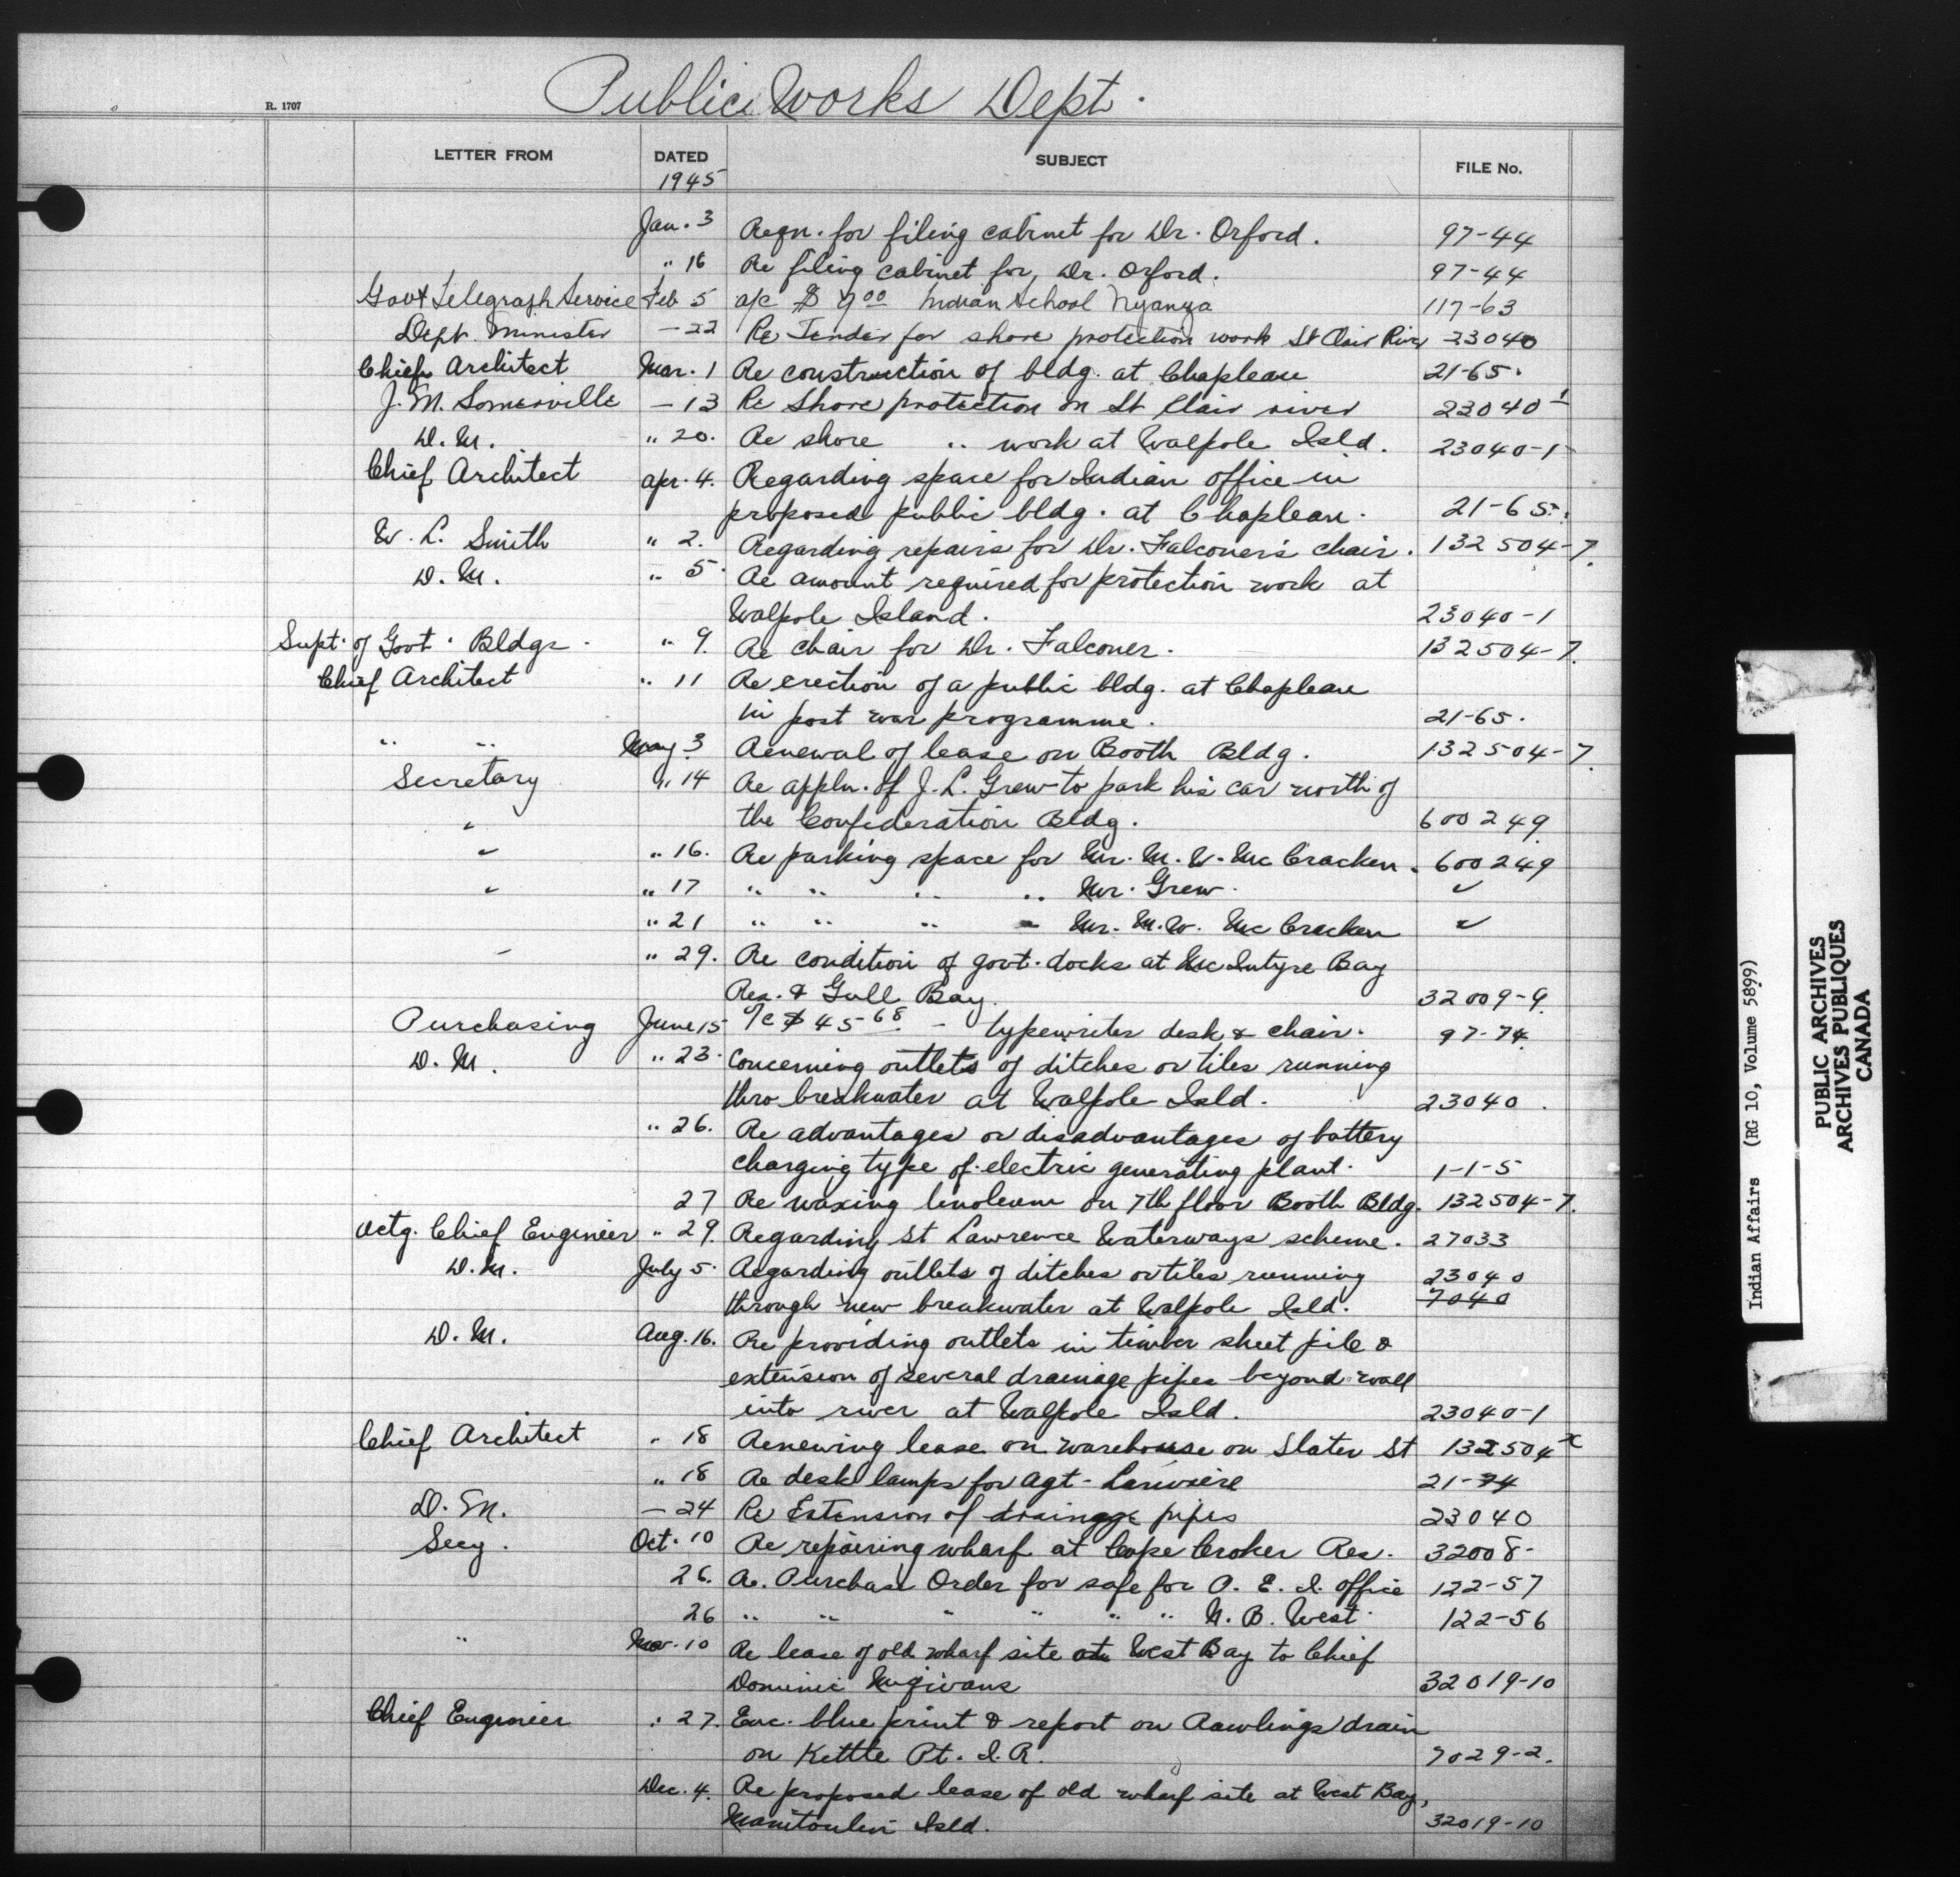 Public Works Dept.
R. 1707
LETTER FROM DATED SUBJECT FILE No.
1945
Jan. 3 Reqn. for filing cabinet for Dr. Orford. 97-44
" 16 Re filing cabinet for Dr. Orford. 97-44
Govt Telegraph Service Feb 5 a/c $ 7 00 Indian School Nyanza 117-63
Dept. Minister — 22 Re Tender for shore protection work St Clair River 23040
Chief Architect Mar. 1 Re construction of bldg. at Chapleau 21-65.
J. M. Somerville — 13 Re Shore protection on St Clair river 23040-1
D. M. " 20. Re shore " work at Walpole Isld. 23040-1
Chief Architect Apr. 4. Regarding space for Indian Office in
proposed public bldg. at Chapleau. 21-65.
W. L. Smith " 2. Regarding repairs for Dr. Falconer's chair. 132504-7.
D. M. " 5. Re amount required for protection work at
Walpole Island. 23040-1
Supt. of Govt. Bldgs. " 9. Re chair for Dr. Falconer. 132504-7.
Chief Architect " 11 Re erection of a public bldg. at Chapleau
in post war programme. 21-65.
" " May 3 Renewal of lease on Booth Bldg. 132504-7.
Secretary " 14 Re appln. of J. L. Grew to park his car north of
" the Confederation Bldg. 600249.
" " 16. Re parking space for Mr. M. W. McCracken. 600249
" " 17 " " " " Mr. Grew. "
" 21 " " " " Mr. M. W. McCracken "
" " 29. Re condition of govt. docks at McIntyre Bay
Res. & Gull Bay. 32009-9.
Purchasing June 15 a/c $ 45 68 — typewriter desk & chair. 97-74.
D. M. " 23. Concerning outlets of ditches or tiles running
thro breakwater at Walpole Isld. 23040.
" 26. Re advantages or disadvantages of battery
charging type of electric generating plant. 1-1-5
27 Re waxing linoleum on 7th floor Booth Bldg. 132504-7.
Actg. Chief Engineer " 29. Regarding St Lawrence Waterways scheme. 27033
D. M. July 5. Regarding outlets of ditches or tiles running 23040
through new breakwater at Walpole Isld. 7040
D. M. Aug. 16. Re providing outlets in timber sheet pile &
extension of several drainage pipes beyond wall
into river at Walpole Isld. 23040-1
Chief Architect " 18 Renewing lease on warehouse on Slater St 132504 x
" 18 Re desk lamps for Agt. Lariviere 21-74
D. M. — 24 Re Extension of drainage pipes 23040
Secy. Oct. 10 Re repairing wharf at Cape Croker Res. 32008-
26. Re. Purchase Order for safe for P. E. I. office 122-57
26 " " " " " " N. B. West. 122-56
" Nov. 10 Re lease of old wharf site at West Bay to Chief
Dominic 32019-10
Chief Engineer " 27. Enc. blue print & report on Rawlings drain
on Kettle Pt. I. R. 7029-2.
Dec. 4. Re proposed lease of old wharf site at West Bay,
Manitoulin Isld. 32019-10
Indian Affairs (RG 10, Volume 5899)
PUBLIC ARCHIVES
ARCHIVES PUBLIQUES
CANADA